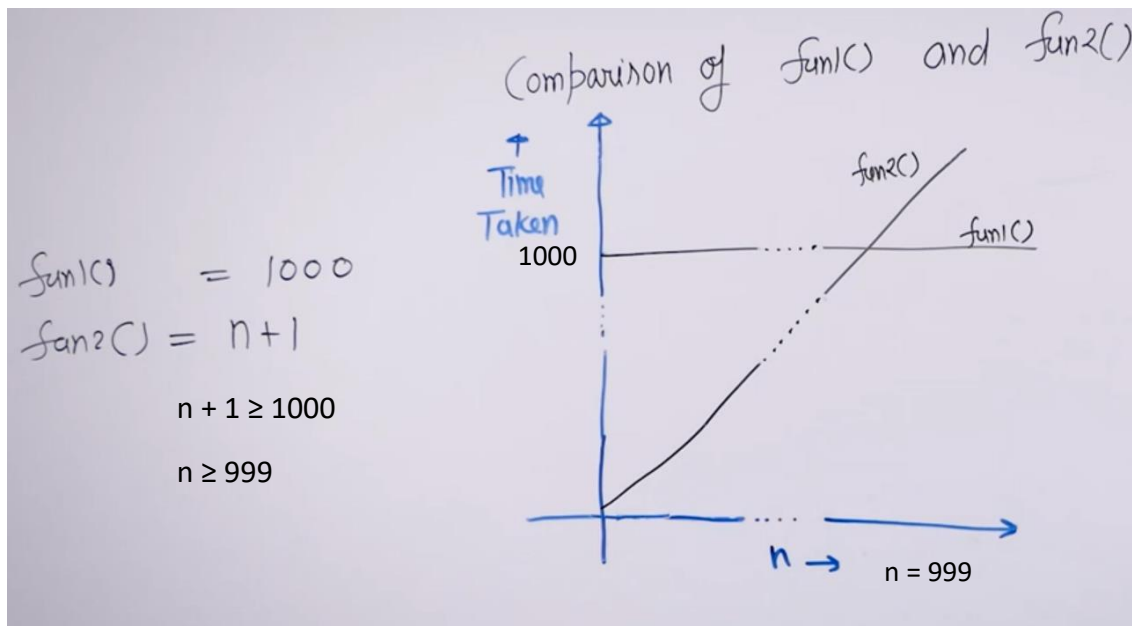 Comparison of fun1() and fun2()
↑
Time
Taken
fun2()
1000
fun1()
fun1() = 1000
fan2() = n+1
n + 1 ≥ 1000
n ≥ 999
n →
n = 999